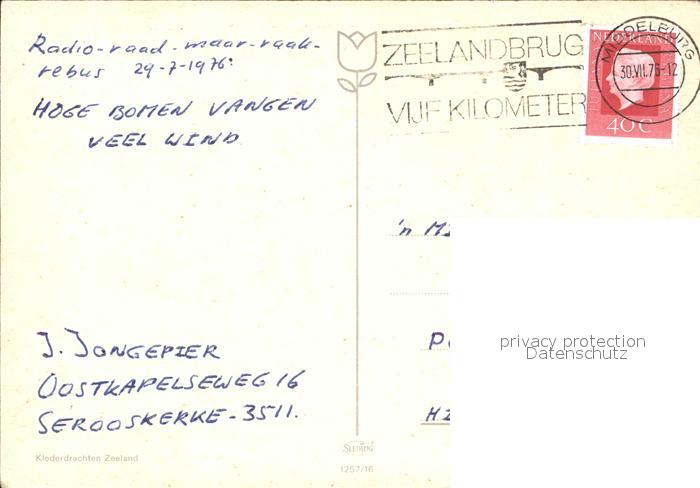 Radio-raad-maar-raak-
rebus 29-7-1976.
HOGE BOMEN VANGEN
VEEL WIND
J. JONGEPIER
OOSTKAPELSEWEG 16
SEROOSKERKE-3511.
Klederdrachten Zeeland
SLEDING
1257/16
ZEELANDBRUG
VIJF KILOMETER
MIDDELBURG
30.VII.76-12
NEDERLAND
40C
'n
privacy protection
Datenschutz